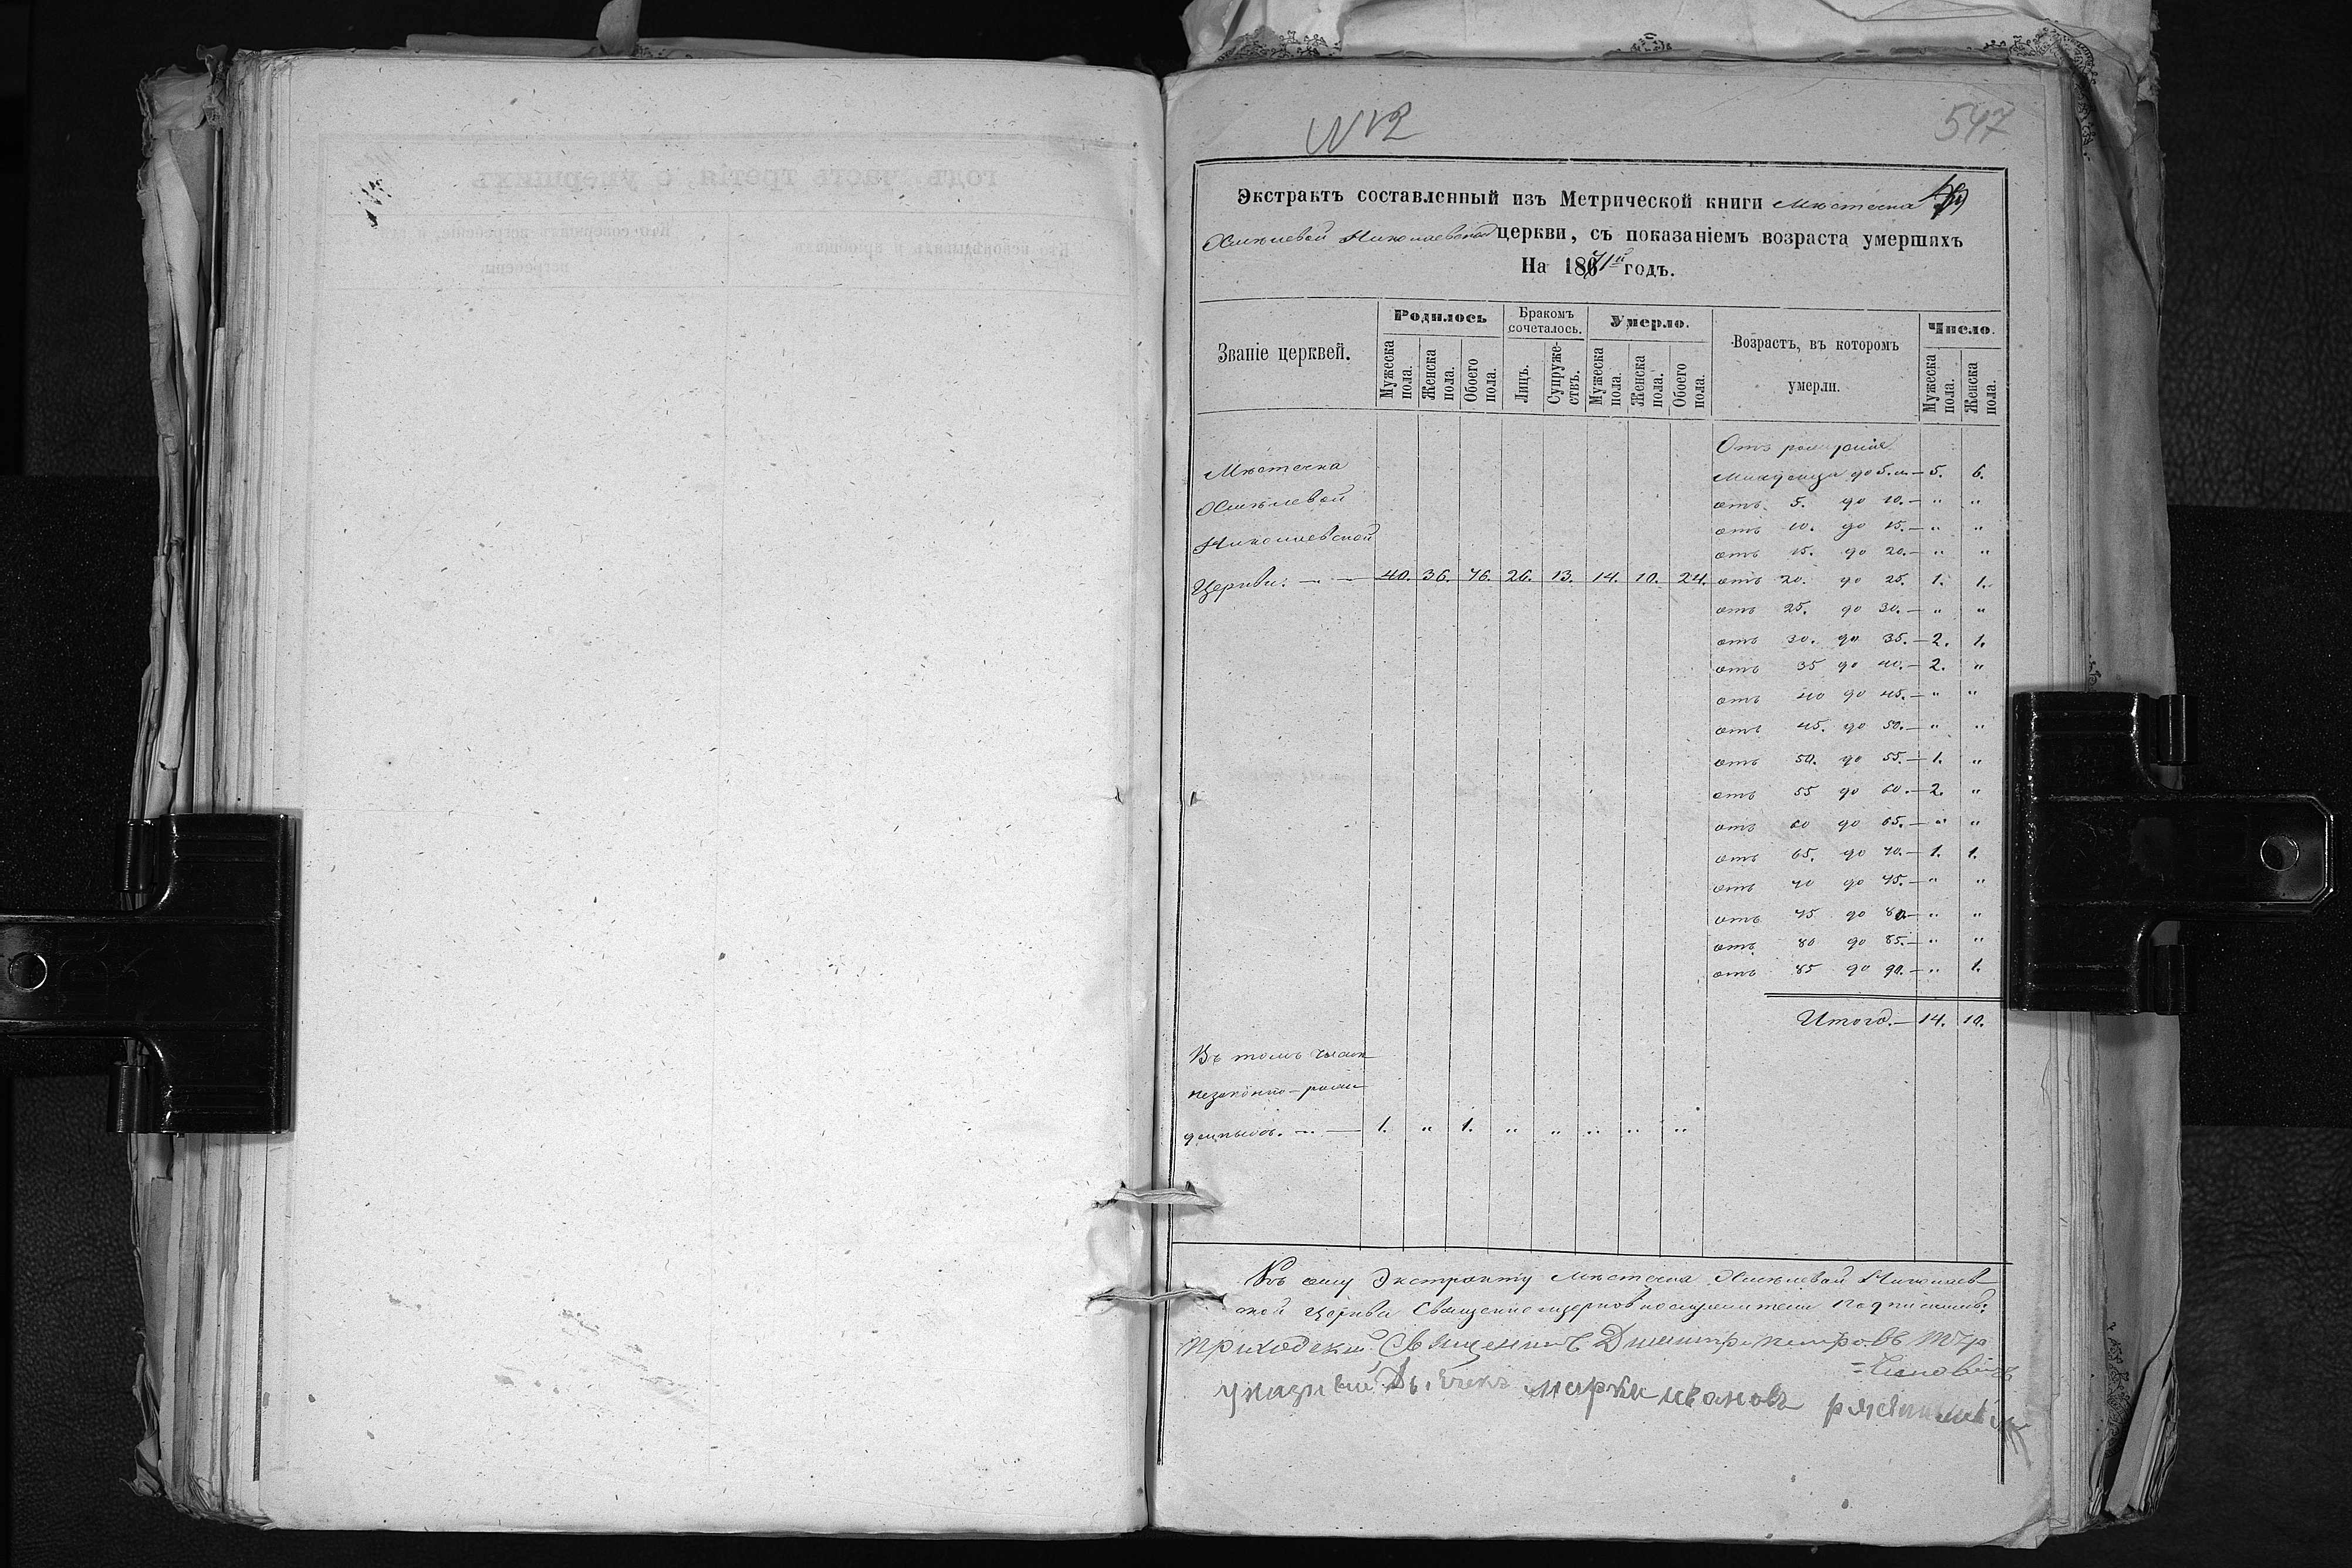 N 12
547
Экстрактъ составленный изъ Метрической книги Мѣстечка
Хмѣлевой Николаевской церкви, съ показаніемъ возраста умершихъ
На 1871й годъ.
Званіе церквей.
Родилось
Бракомъ сочеталось.
Умерло.
Возрастъ, въ которомъ умерли.
Число.
Мужеска пола.
Женска пола.
Обоего пола.
Лицъ.
Супружествъ.
Мужеска пола.
Женска пола.
Обоего пола.
Мужеска пола.
Женска пола.
Отъ рожденія
Мѣстечка
Младенца до 5. л. — 5. 6.
Хмѣлевой
отъ 5. до 10. — " "
Николаевской
отъ 10. до 15. — " "
отъ 15. до 20. — " "
Церкви. — — 40. 36. 76. 26. 13. 14. 10. 24. отъ 20. до 25. 1. 1.
отъ 25. до 30. — " "
отъ 30. до 35. — 2. 1.
отъ 35 до 40. — 2. "
отъ 40 до 45. — " "
отъ 45. до 50. — " "
отъ 50. до 55. — 1. "
отъ 55 до 60. — 2. "
отъ 60 до 65. — " "
отъ 65. до 70. — 1. 1.
отъ 70 до 75. — " "
отъ 75 до 80 — " "
отъ 80 до 85. — " "
отъ 85 до 90. — " 1.
Итого. — 14. 10.
Въ томъ числѣ
незаконно-рож-
денныхъ. — — 1. " 1. " " " " "
Къ сему Экстракту Мѣстечка Хмѣлевой Николаев-
ской Церкви Священноцерковнослужители подписались:
Приходскій Священникъ Димитрі Петровъ
указный Дьячекъ Марко ивановъ